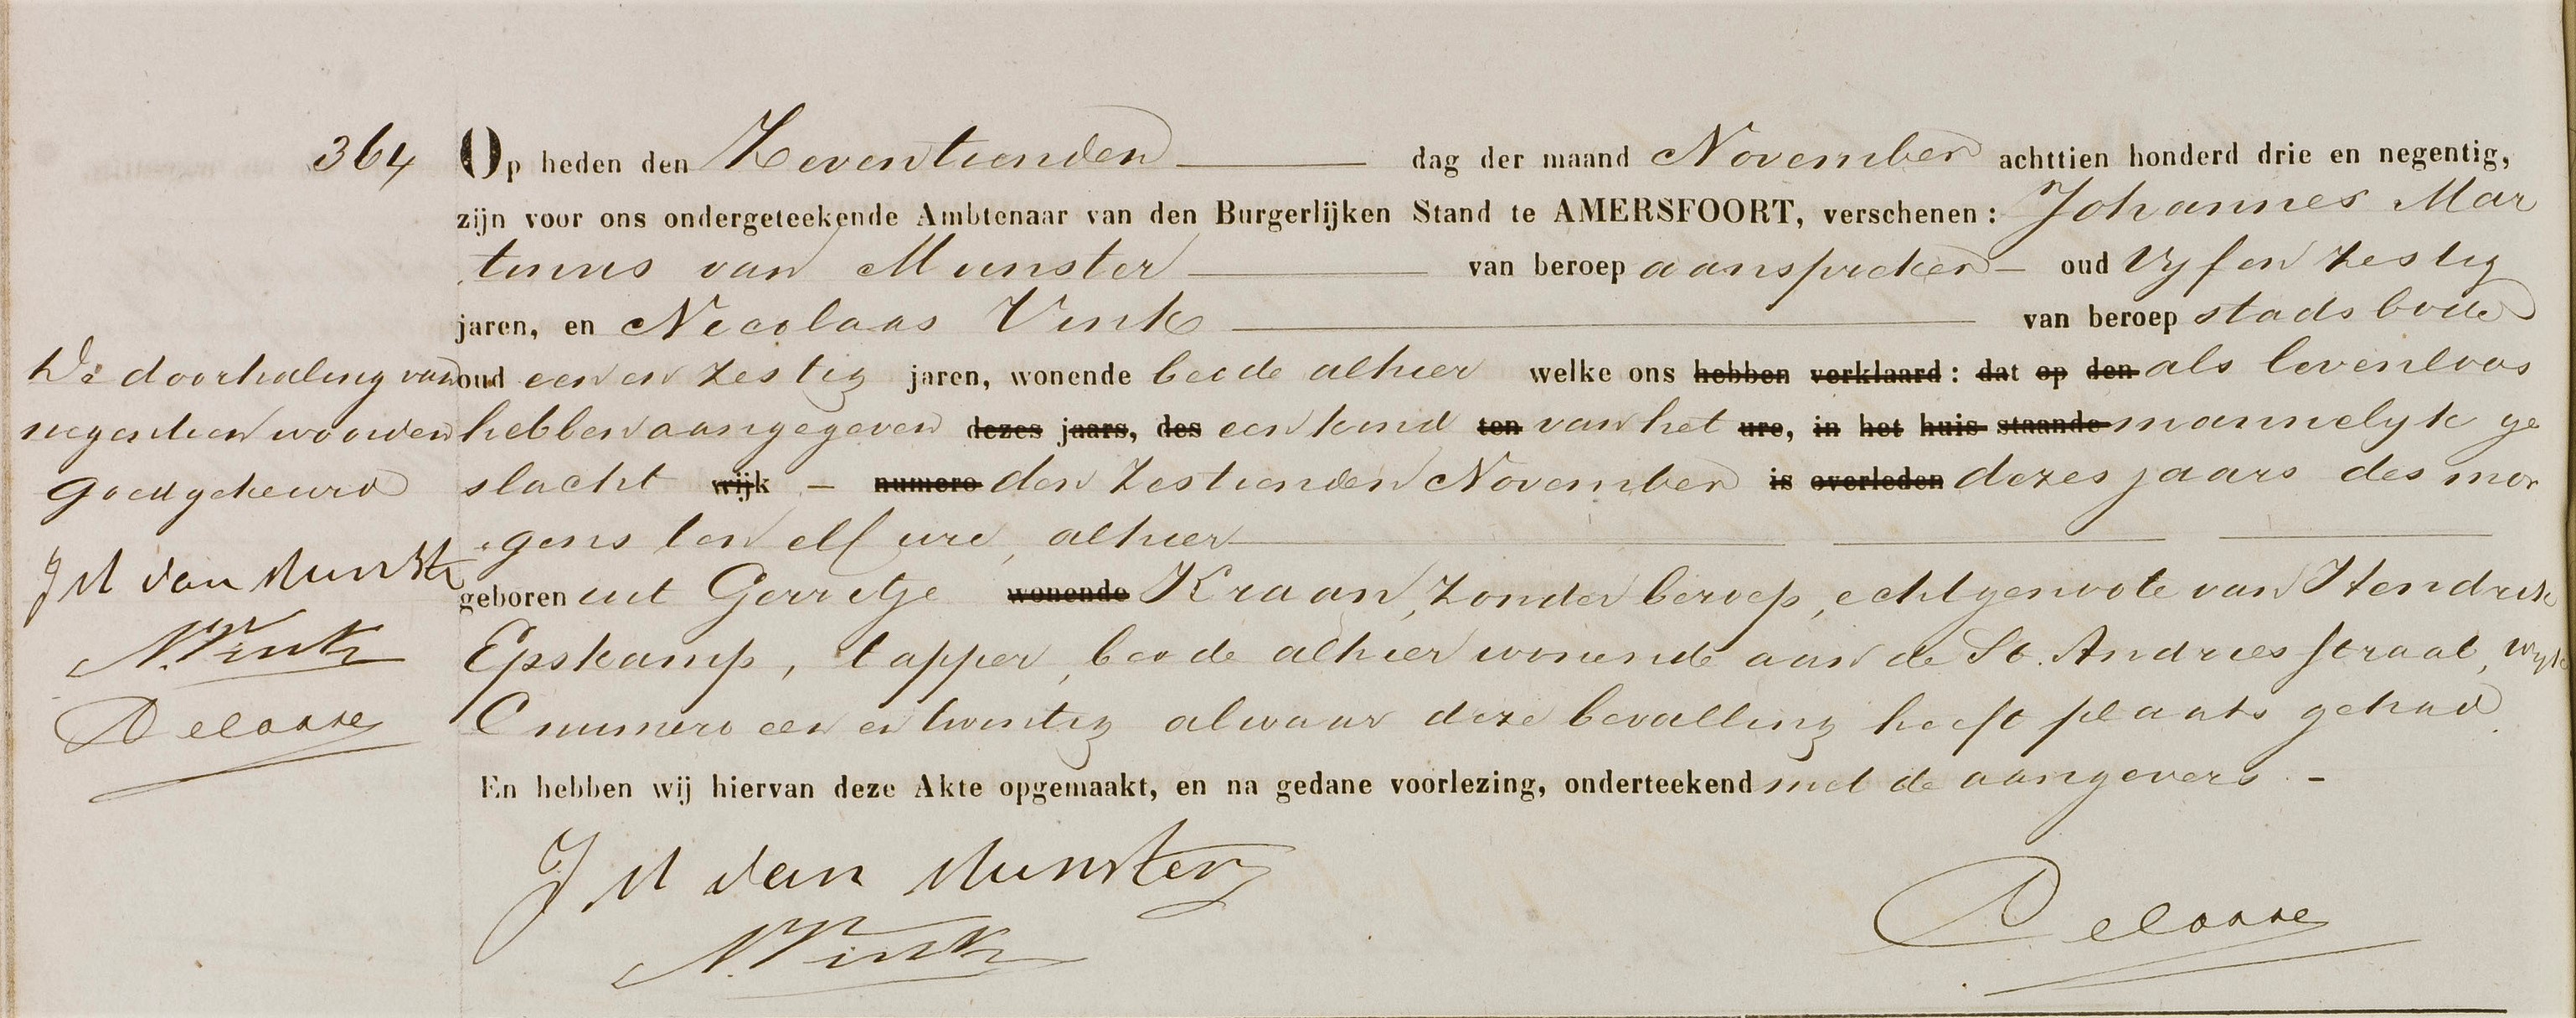 364 Op heden den Zeventienden dag der maand November achttien honderd drie en negentig,
zijn voor ons ondergeteekende Ambtenaar van den Burgerlijken Stand te AMERSFOORT, verschenen: Johannes Mar
tinus van Munster van beroep aanspreker oud Vyf en zestig
jaren, en Nicolaas Vink van beroep stadsbode
oud een en zestig jaren, wonende beide alhier welke ons hebben verklaard: dat op den als levenloos
hebben aangegeven dezes jaars, des een kind ten van het ure, in het huis staande mannelyk ge
slacht wijk – numero den Zestienden November is overleden dezes jaars des mor
gens ten elf ure, alhier
geboren uit Gerritje wonende Kraan, zonder beroep, echtgenoote van Hendrik
Epskamp, tapper, beide alhier wonende aan de St. Andriesstraat, wyk
C numero een en twintig alwaar deze bevalling heeft plaats gehad
En hebben wij hiervan deze Akte opgemaakt, en na gedane voorlezing, onderteekend met de aangevers. –
J M van Munster
N. Vink
De doorhaling van
negentien woorden
goedgekeurd
J M van Munster
N. Vink